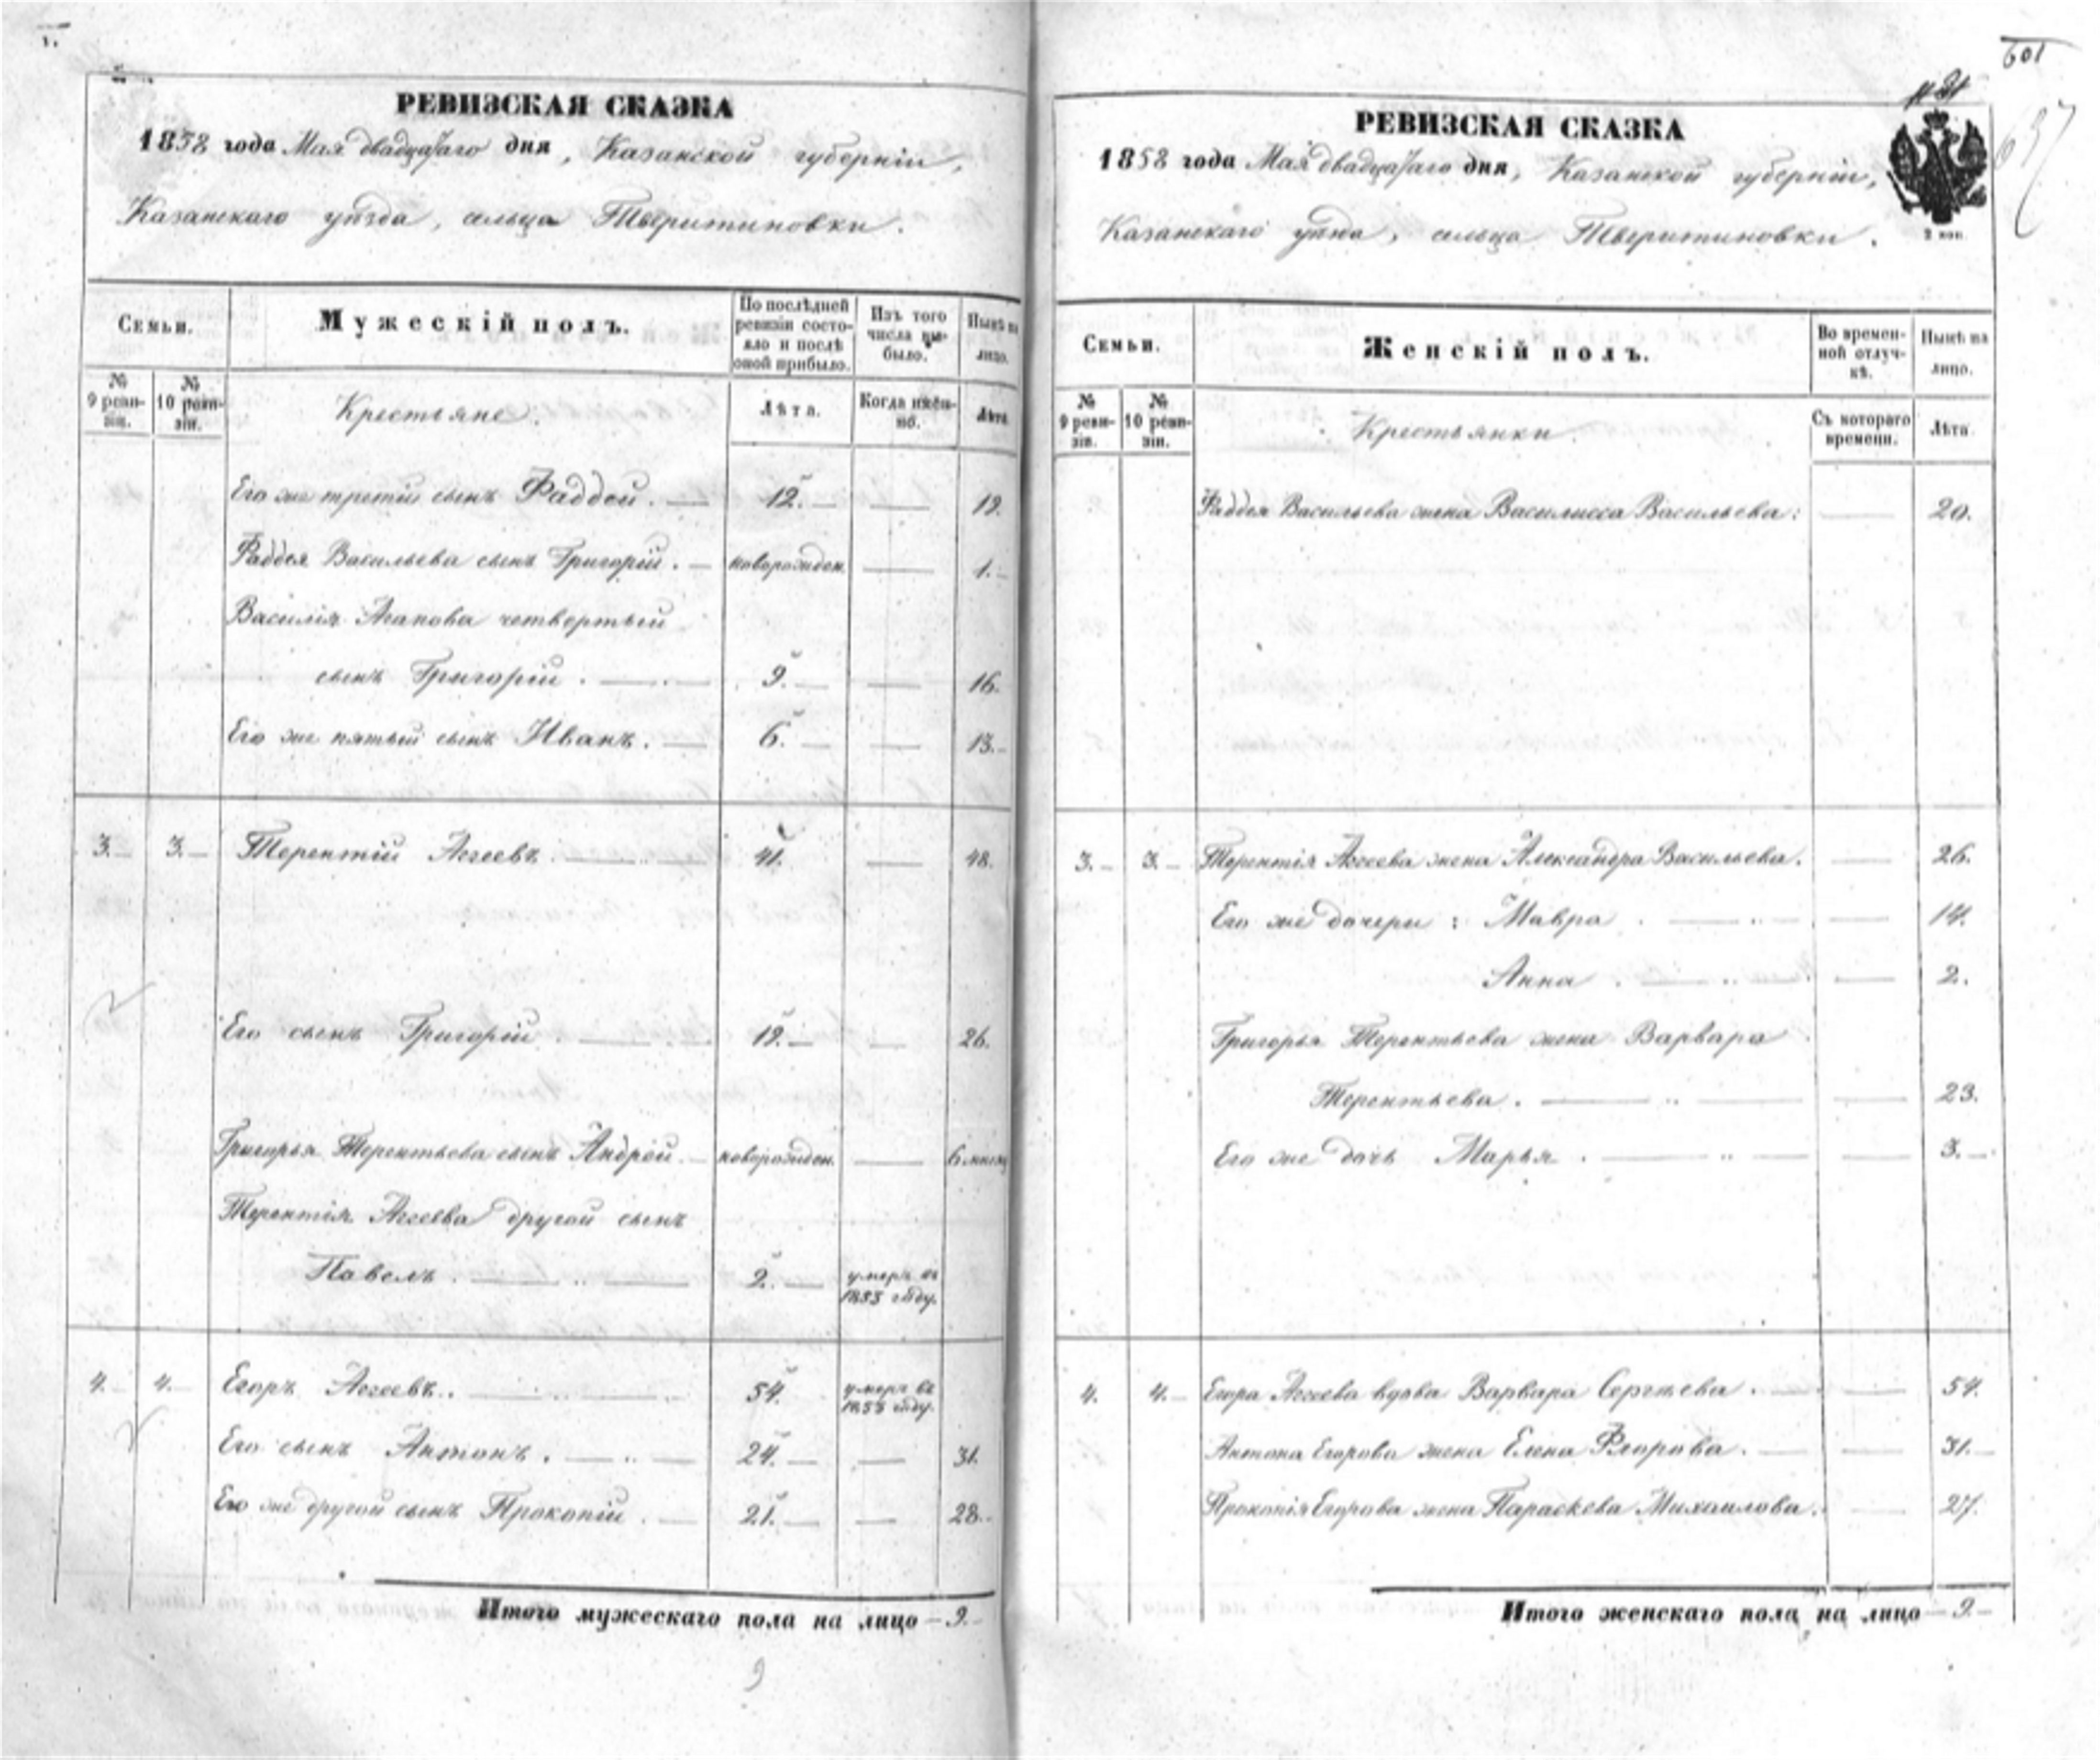 РЕВИЗСКАЯ СКАЗКА
1858 года Мая двадцатаго дня, Казанской губерніи,
Казанскаго уѣзда, сельца Тверитиновки.
Семьи.
Мужескій полъ.
По послѣдней ревизіи состояло и послѣ оной прибыло.
Изъ того числа выбыло.
Нынѣ на лицо.
№ 9 ревизіи.
№ 10 ревизіи.
Крестьяне.
Лѣта.
Когда именно.
Лѣта.
Его же третій сынъ Фаддей. — 12. — — 19.
Фаддея Васильева сынъ Григорій. — новорожден. — 1. —
Василія Агапова четвертый
сынъ Григорій. — 9. — — 16.
Его же пятый сынъ Иванъ. — 6. — — 13. —
3. — 3. — Терентій Агеевъ. — 41. — 48.
Его сынъ Григорій. — 19. — — 26.
Григорья Терентьева сынъ Андрей. — новорожден. — 6 месяц
Терентія Агеева другой сынъ
Павелъ. — 2. — умеръ въ 1853 году.
4. — 4. — Егоръ Агеевъ. — 54. умеръ въ 1855 году.
Его сынъ Антонъ. — 24. — — 31.
Его же другой сынъ Прокопій. — 21. — — 28. —
Итого мужескаго пола на лицо — 9. —
9
601
637
РЕВИЗСКАЯ СКАЗКА
1858 года Мая двадцатаго дня, Казанской губерніи,
Казанскаго уѣзда, сельца Тверитиновки.
2 коп.
Семьи.
Женскій полъ.
Во временной отлучкѣ.
Нынѣ на лицо.
№ 9 ревизіи.
№ 10 ревизіи.
Крестьянки.
Съ котораго времени.
Лѣта.
Фаддея Васильева жена Василисса Васильева: — 20.
3. — 3. — Терентія Агеева жена Александра Васильева. — 26.
Его же дочери: Мавра. — — 14.
Анна. — — 2.
Григорья Терентьева жена Варвара
Терентьева. — — 23.
Его же дочь Марья. — — 3. —
4. 4. — Егора Агеева вдова Варвара Сергѣева. — — 54.
Антона Егорова жена Елена Ѳедорова. — — 31. —
Прокопія Егорова жена Параскева Михаилова. — 27.
Итого женскаго пола на лицо — 9. —